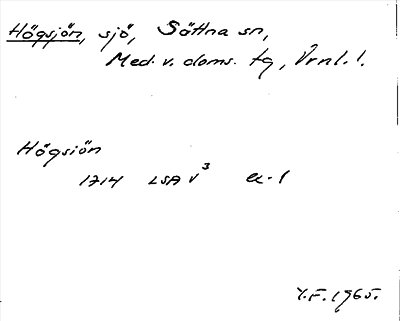 Högsjön, sjö, Sättna sn,
Med. v. doms. tg, Vrnl. l.
Högsiön
1714 LSA V³ a:1
Y.F. 1965.